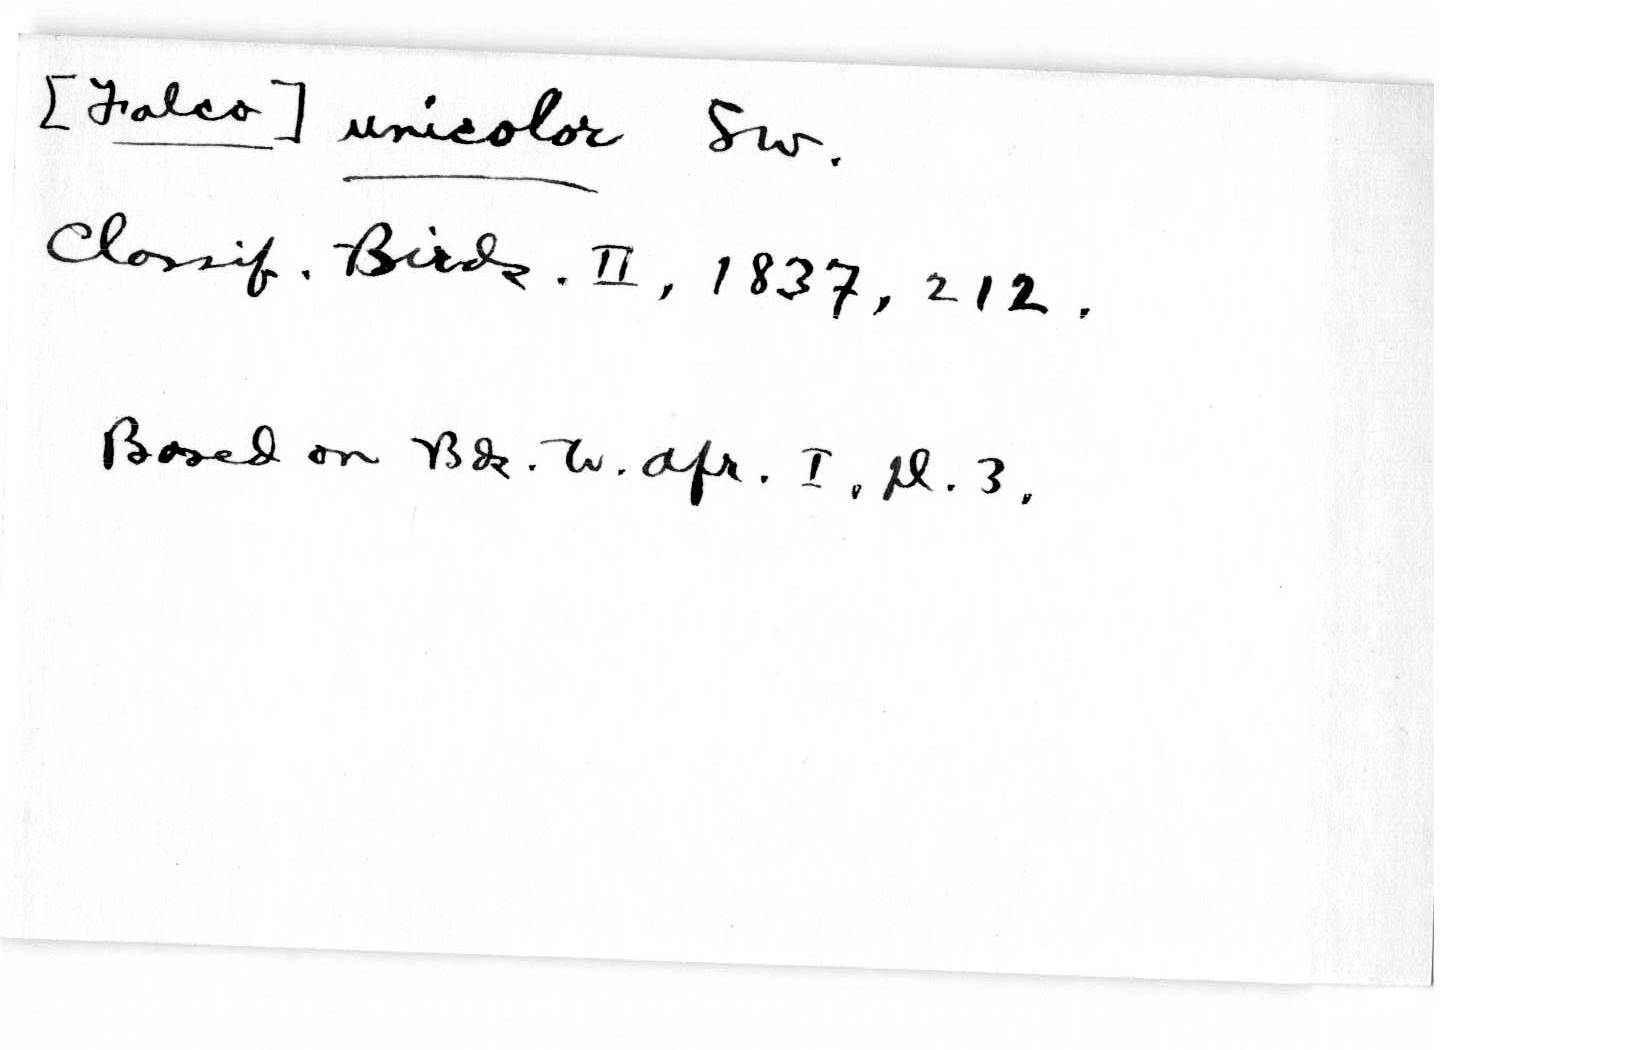 [Falco] unicolor Sw.
Classif. Birds. II, 1837, 212.
Based on Bds. W. Afr. I, pl. 3.